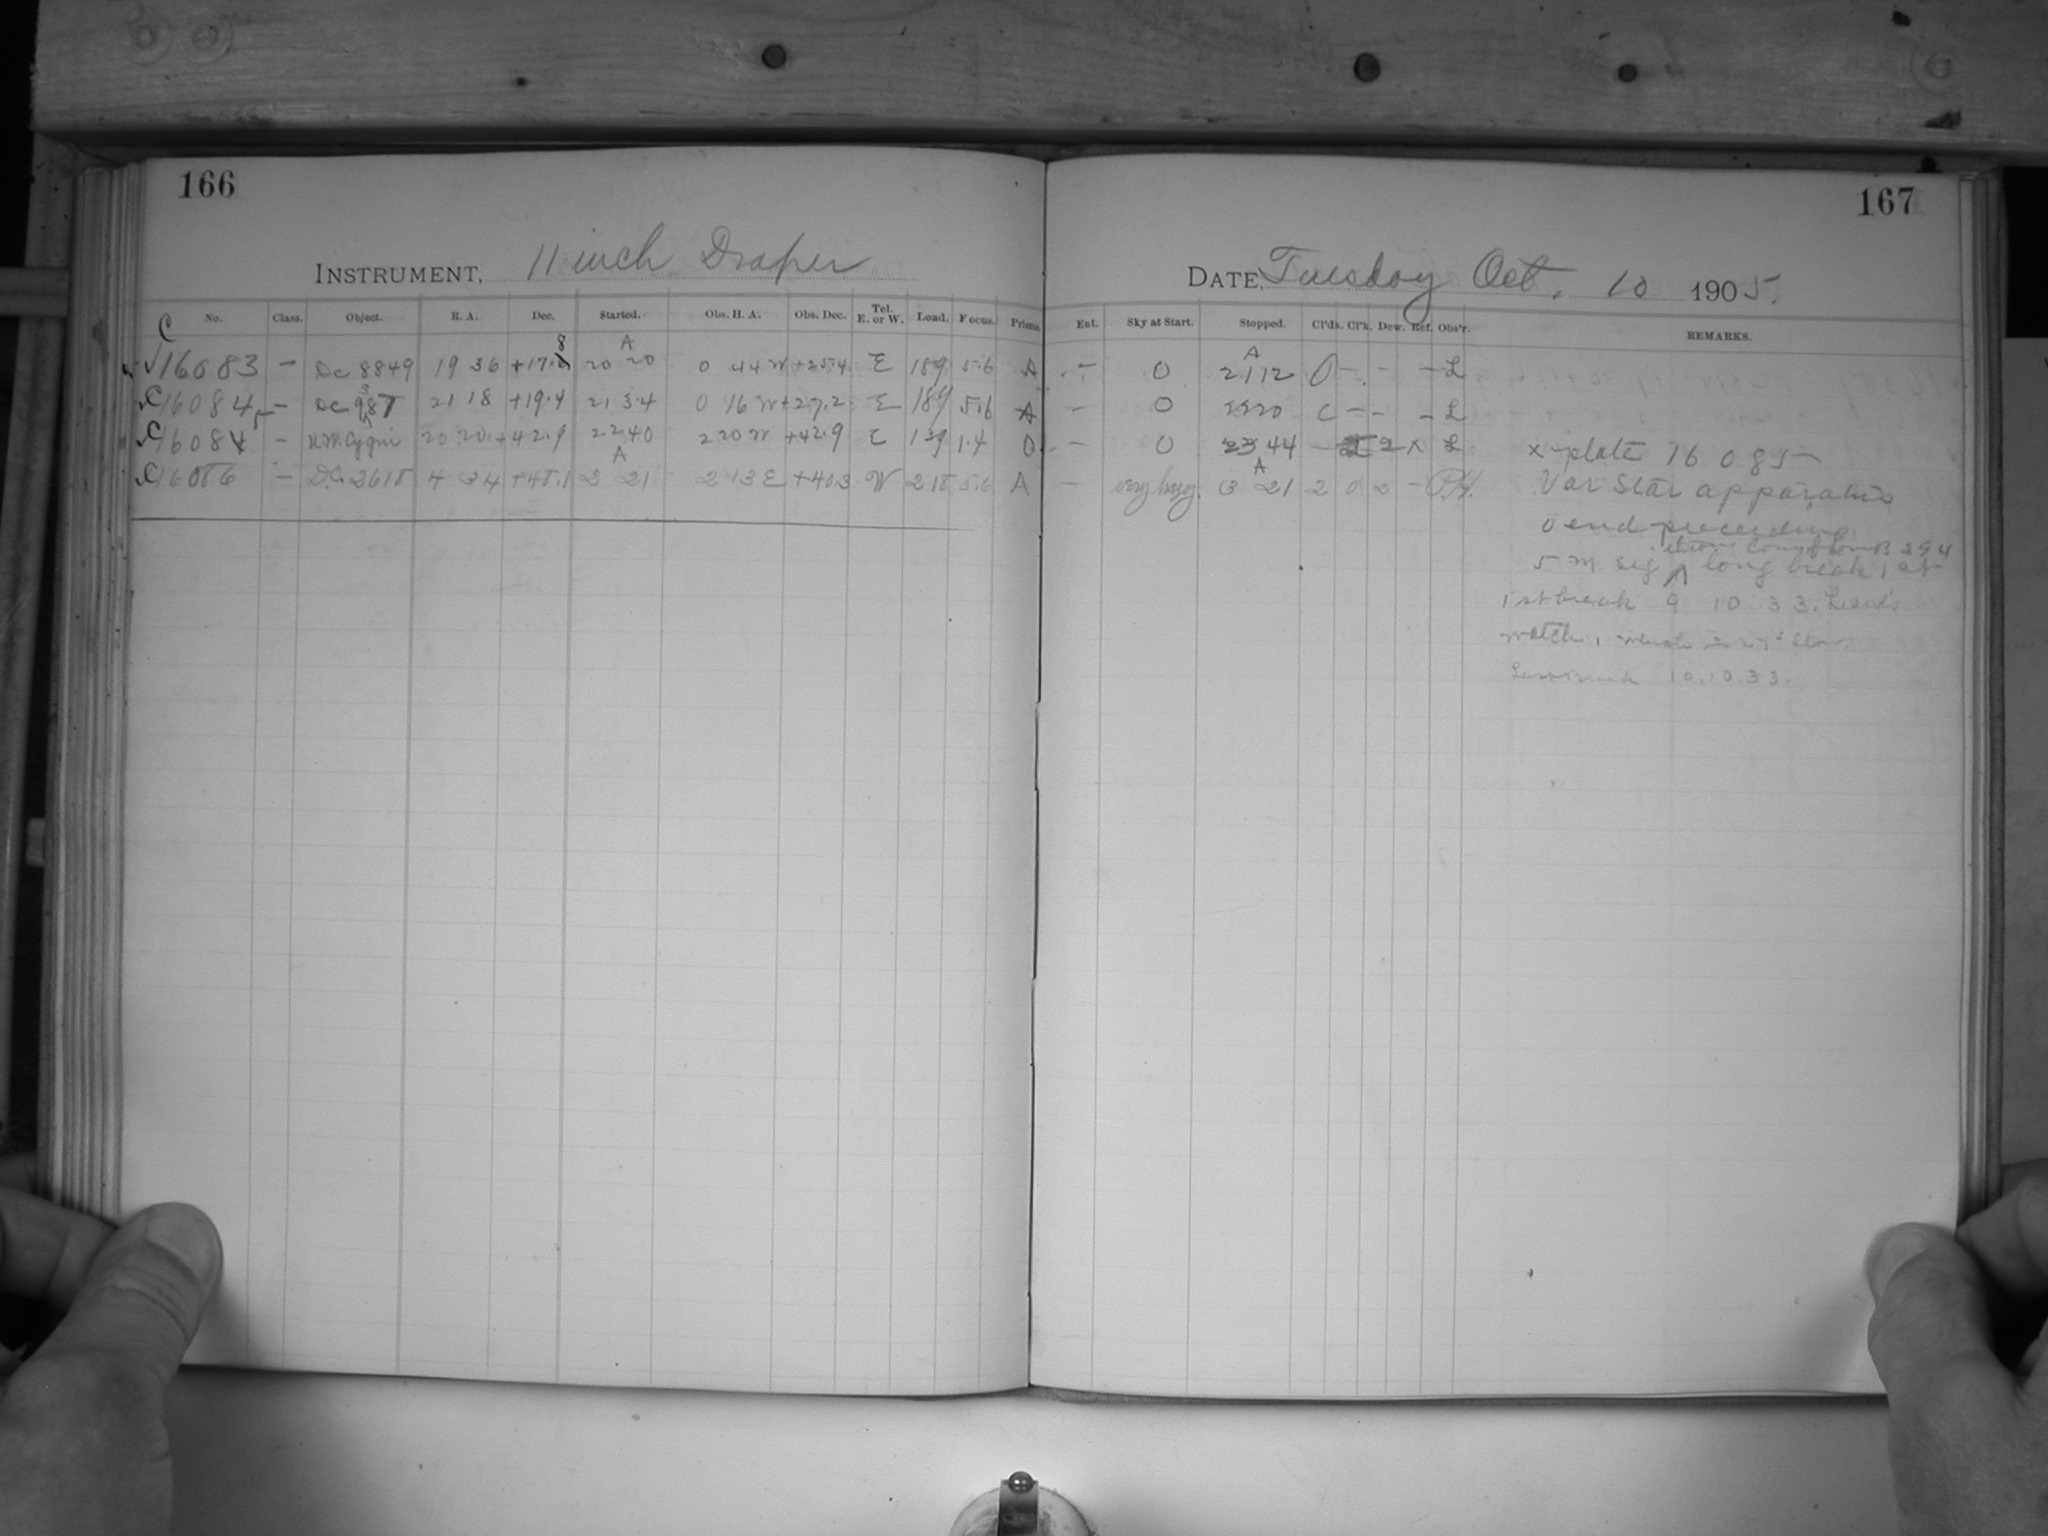 166
INSTRUMENT, 11 inch Draper
C No. Class. Object. R. A. Dec. Started. Obs. H. A. Obs. Dec. Tel. E. or W. Load. Focus. Prisms.
√16083 — DC 8849 19 36 +17.8 A 20 20 0 44 W +25.4 E 189 5.6 A
C16084 — DC 21 18 +19.4 21 34 0 16 W +27.2 E 189 5.6 A
C16085 — Cygni 20 20 +42.9 22 40 2 20 W +42.9 E 139 1.4 0
C16086 — D.C. 2618 4 34 +48.1 A 2 21 2 13 E +40.3 W 218 5.6 A
167
DATE, Tuesday Oct. 10 1905.
Ent. Sky at Start. Stopped. Cl'ds. Cl'k. Dew. Ref. Obs'r. REMARKS.
— 0 A 21 12 0 — — — L
— 0 2220 C — — — L
— 0 23 44 — 2 x L x-plate 16085
— very hazy A 3 21 2 0 2 — Var Star apparatus
0 end preceding
5 m sig long break, at
1st break 9 10 33,
watch, which is slow.
Last break 10.10.33.